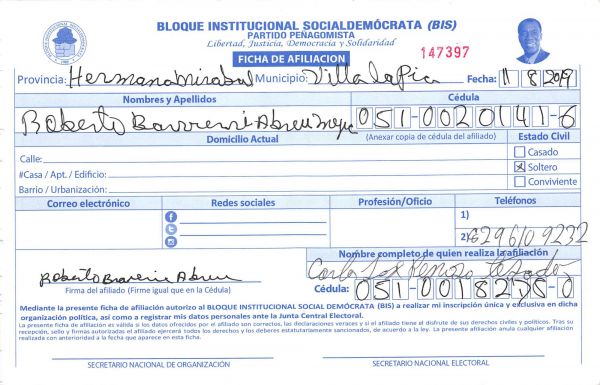 BLOQUE INSTITUCIONAL SOCIALDEMÓCRATA (BIS)
PARTIDO PEÑAGOMISTA
Libertad, Justicia, Democracia y Solidaridad
FICHA DE AFILIACION
147397
Provincia: Hermana Mirabal Municipio: Villa Tapia Fecha: 11 8 2019
Nombres y Apellidos Cédula
Roberto Abreu 051-0020141-6
Domicilio Actual (Anexar copia de cédula del afiliado) Estado Civil
Calle: Casado
#Casa / Apt. / Edificio: Soltero
Barrio / Urbanización: Conviviente
Correo electrónico Redes sociales Profesión/Oficio Teléfonos
1)
2) 8296109232
Nombre completo de quien realiza la afiliación
Roberto Abreu
Firma del afiliado (Firme igual que en la Cédula) Cédula: 051-00182 -0
Mediante la presente ficha de afiliación autorizo al BLOQUE INSTITUCIONAL SOCIAL DEMÓCRATA (BIS) a realizar mi inscripción única y exclusiva en dicha
organización política, así como a registrar mis datos personales ante la Junta Central Electoral.
La presente ficha de afiliación es válida si los datos ofrecidos por el afiliado son correctos, las declaraciones veraces y si el afiliado tiene el disfrute de sus derechos civiles y políticos. Tras su
recepción, sello y firmas autorizadas el afiliado ejercerá todos los derechos y los deberes estatutariamente sancionados, de acuerdo a la ley. La presente afiliación anula cualquier afiliación
realizada con anterioridad a la fecha que aparece en esta ficha.
SECRETARIO NACIONAL DE ORGANIZACIÓN SECRETARIO NACIONAL ELECTORAL